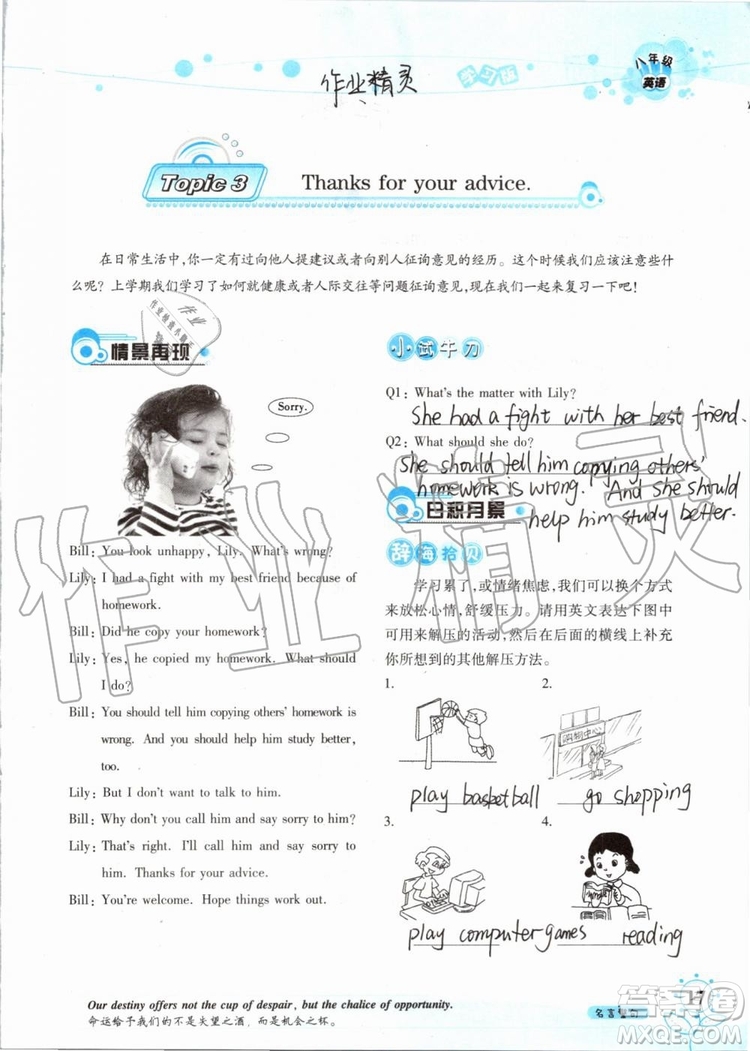 学习版
八年级
英语
作业精灵
Topic 3
Thanks for your advice.
在日常生活中,你一定有过向他人提建议或者向别人征询意见的经历。这个时候我们应该注意些什
么呢?上学期我们学习了如何就健康或者人际交往等问题征询意见,现在我们一起来复习一下吧!
情景再现
Sorry.
Bill: You look unhappy, Lily. What's wrong?
Lily: I had a fight with my best friend because of
homework.
Bill: Did he copy your homework?
Lily: Yes, he copied my homework. What should
I do?
Bill: You should tell him copying others' homework is
wrong. And you should help him study better,
too.
Lily: But I don't want to talk to him.
Bill: Why don't you call him and say sorry to him?
Lily: That's right. I'll call him and say sorry to
him. Thanks for your advice.
Bill: You're welcome. Hope things work out.
小试牛刀
Q1: What's the matter with Lily?
She had a fight with her best friend.
Q2: What should she do?
She should tell him copying others'
homework is wrong. And she should
help him study better.
日积月累
辞海拾贝
学习累了,或情绪焦虑,我们可以换个方式
来放松心情,舒缓压力。请用英文表达下图中
可用来解压的活动,然后在后面的横线上补充
你所想到的其他解压方法。
1.
2.
购物中心
play basketball
go shopping
3.
4.
play computer games
reading
Our destiny offers not the cup of despair, but the chalice of opportunity.
命运给予我们的不是失望之酒,而是机会之杯。
17
作业精灵
答案圈
MXQE.COM